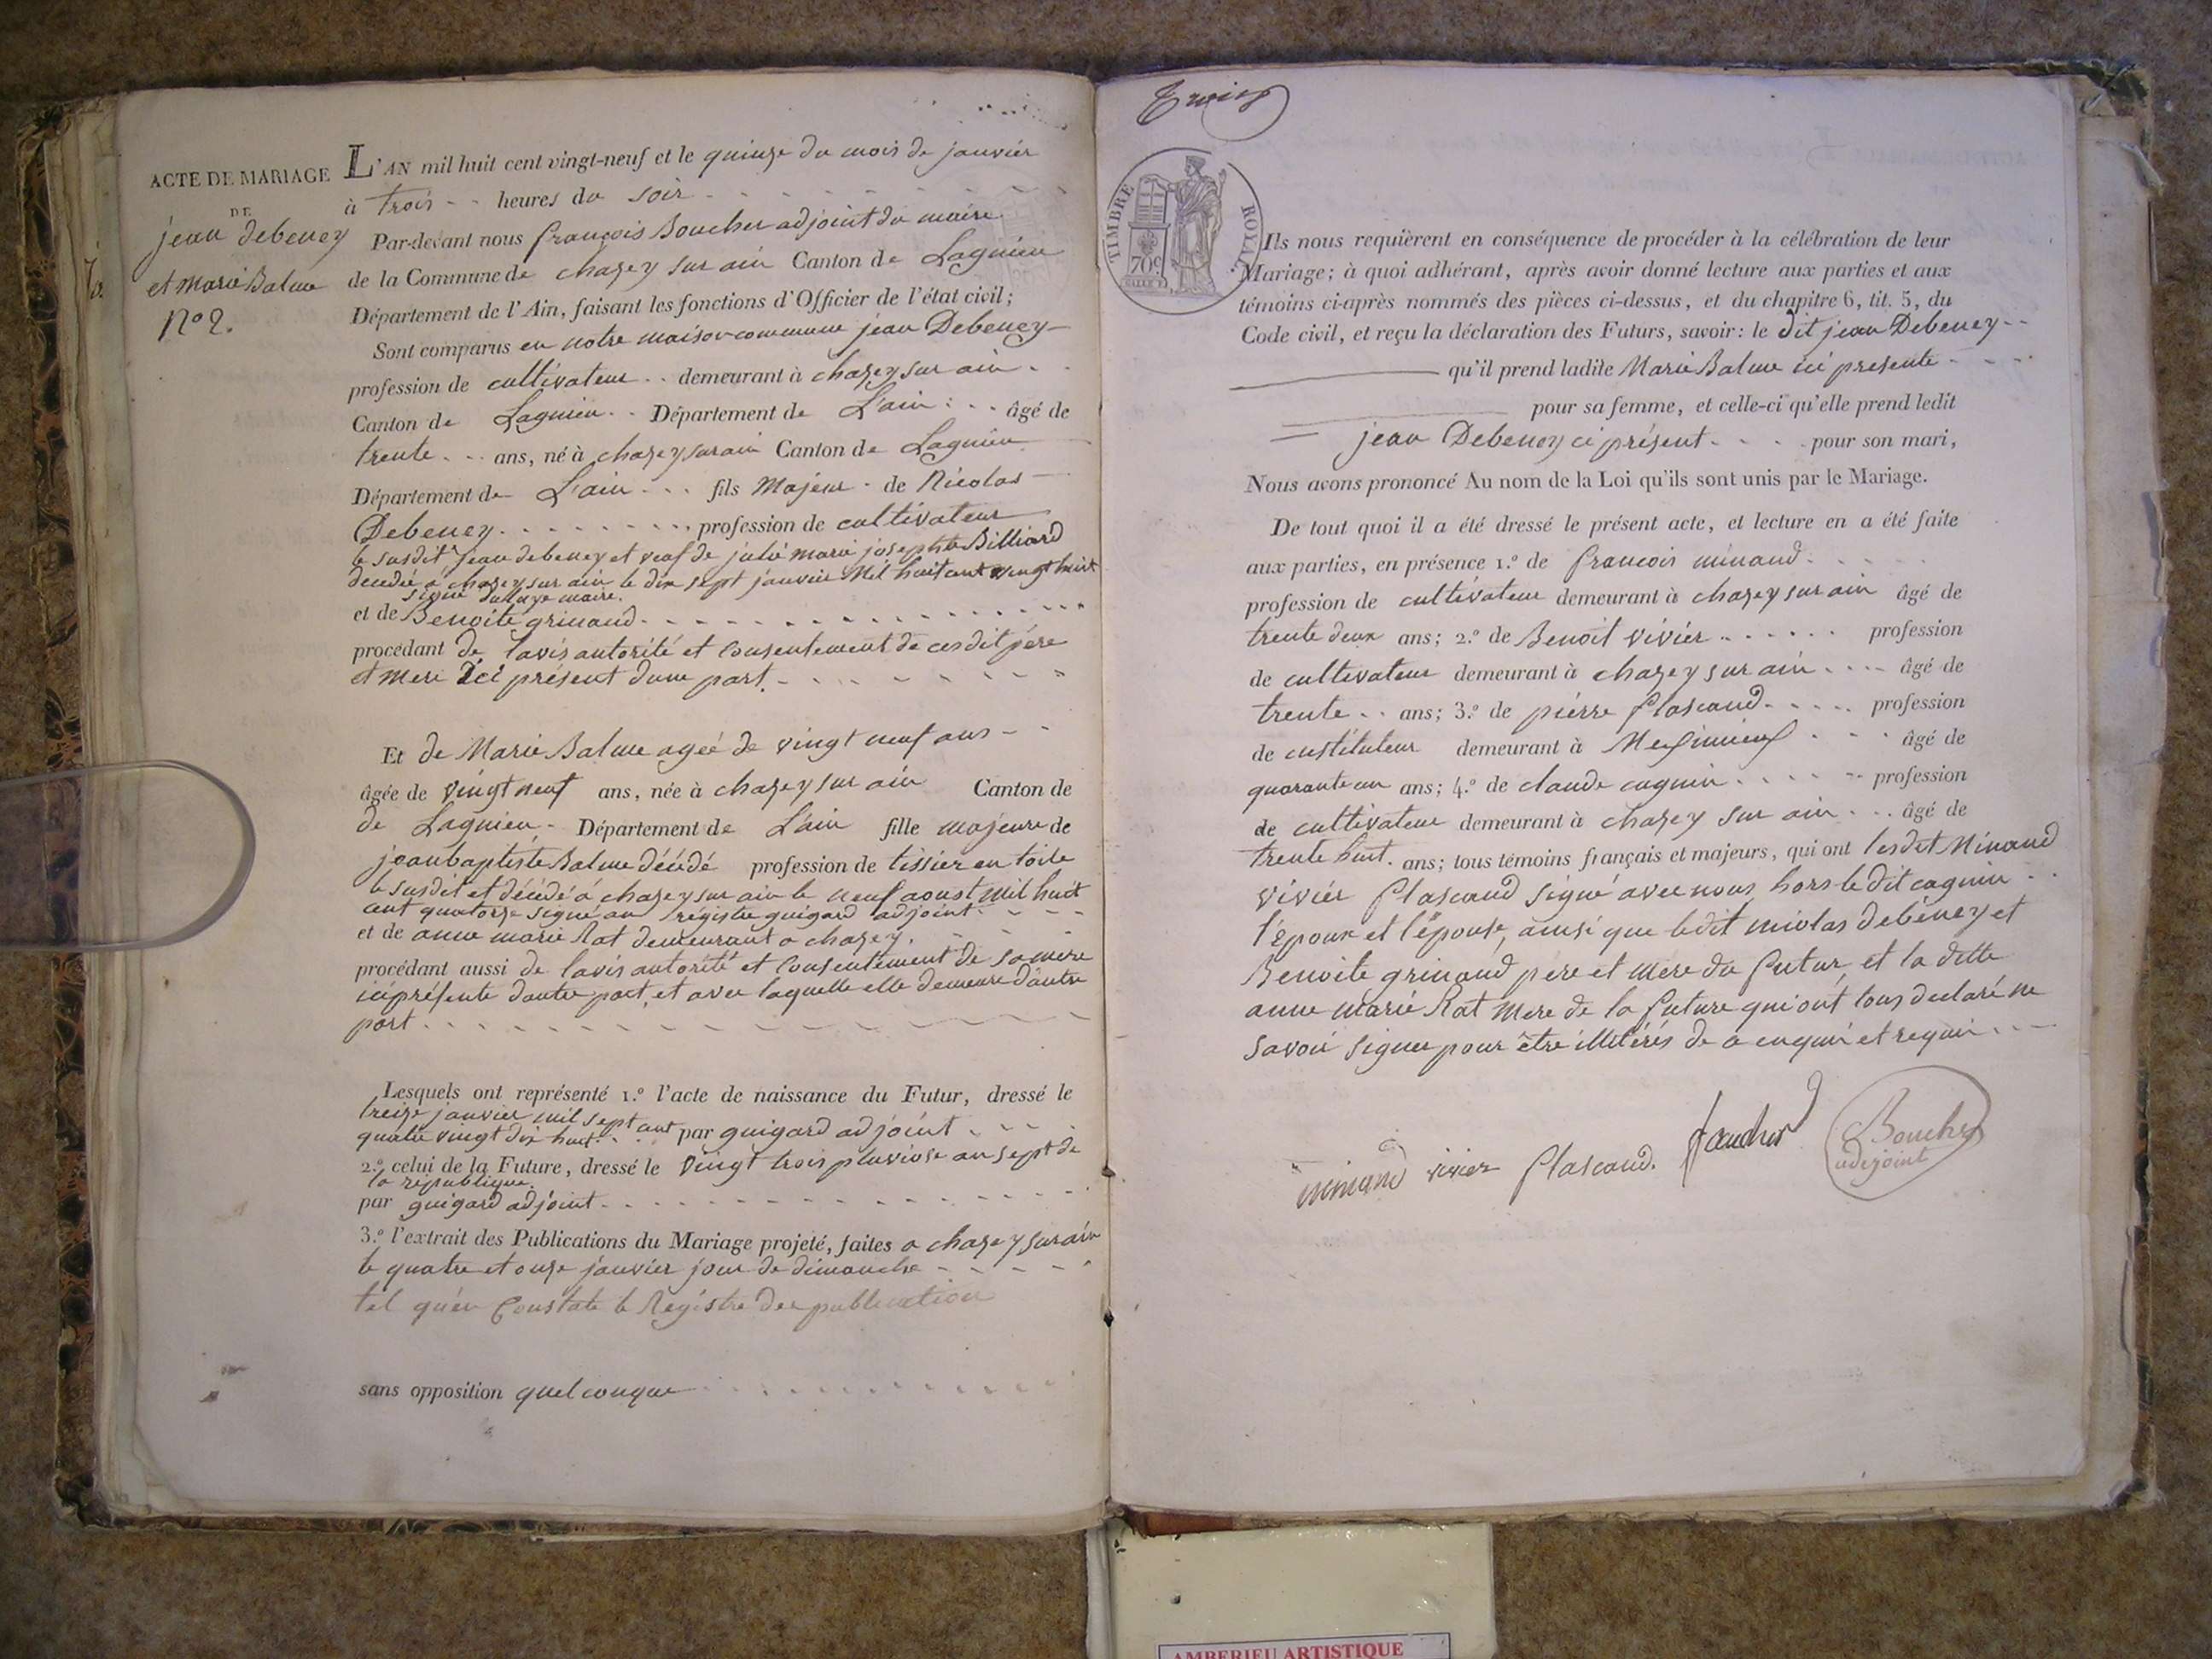 ACTE DE MARIAGE
DE
jean debeney
et marie Balme
No 2.
L'AN mil huit cent vingt-neuf et le quinze du mois de janvier
à trois heures du soir
Par-devant nous françois Boucher adjoint du maire
de la Commune de chazey sur ain Canton de Lagnieu
Département de l'Ain, faisant les fonctions d'Officier de l'état civil;
Sont comparus en notre maison commune jean Debeney
profession de cultivateur demeurant à chazey sur ain
Canton de Lagnieu Département de L'ain âgé de
trente ans, né à chazey sur ain Canton de Lagnieu
Département de L'ain fils Majeur de Nicolas
Debeney profession de cultivateur
le susdit jean debeney et veuf de julie marie josephte Billiard
decedée a chazey sur ain le dix sept janvier Mil huit cent vingt huit
signé maire.
et de Benoite grinand
procédant de lavis autorité et Consentement de ces dit père
et mere ici présent dune part
Et de Marie Balme ageé de vingt neuf ans
âgée de vingt neuf ans, née à chazey sur ain Canton de
de Lagnieu Département de L'ain fille majeure de
jean baptiste Balme décédé profession de tissier en toile
le susdit et décédé a chazey sur ain le neuf aoust mil huit
cent quatorze signé au régistre guigard adjoint
et de anne marie Rat demeurant a chazey.
procédant aussi de lavis autorité et Consentement de sa mere
ici présente dautre part, et avec laquelle elle demeure dautre
part
Lesquels ont représenté 1.º l'acte de naissance du Futur, dressé le
treize janvier mil sept cent
quatre vingt dix huit par guigard adjoint
2.º celui de la Future, dressé le vingt trois pluviose an sept de
la république.
par guigard adjoint
3.º l'extrait des Publications du Mariage projeté, faites a chazey sur ain
le quatre et onze janvier jour de dimanche
tel quen Constate le Régistre des publication
sans opposition quelconque
Trois
TIMBRE ROYAL
70c
Ils nous requièrent en conséquence de procéder à la célébration de leur
Mariage; à quoi adhérant, après avoir donné lecture aux parties et aux
témoins ci-après nommés des pièces ci-dessus, et du chapitre 6, tit. 5, du
Code civil, et reçu la déclaration des Futurs, savoir: le dit jean Debeney
qu'il prend ladite Marie Balme ici presente
pour sa femme, et celle-ci qu'elle prend ledit
jean Debeney ci présent pour son mari,
Nous avons prononcé Au nom de la Loi qu'ils sont unis par le Mariage.
De tout quoi il a été dressé le présent acte, et lecture en a été faite
aux parties, en présence 1.º de francois minand
profession de cultivateur demeurant à chazey sur ain âgé de
trente deux ans; 2.º de Benoit vivier profession
de cultivateur demeurant à chazey sur ain âgé de
trente ans; 3.º de pierre flascand profession
de enstituteur demeurant à Meximieux âgé de
quarante un ans; 4.º de claude cagnin profession
de cultivateur demeurant à chazey sur ain âgé de
trente huit ans; tous témoins français et majeurs, qui ont lesdit Minand
vivier flascand signé avec nous hors le dit cagnin
l'Epoux et l'épouse, ainsi que ledit nicolas debeney et
Benoite grinand pere et mere du futur, et la ditte
anne marie Rat Mere de la future qui ont tous declaré ne
savoir signer pour être illitérés de a enquis et requis
minand vivier flascand. Boucher
adejoint
AMBERIEU ARTISTIQUE